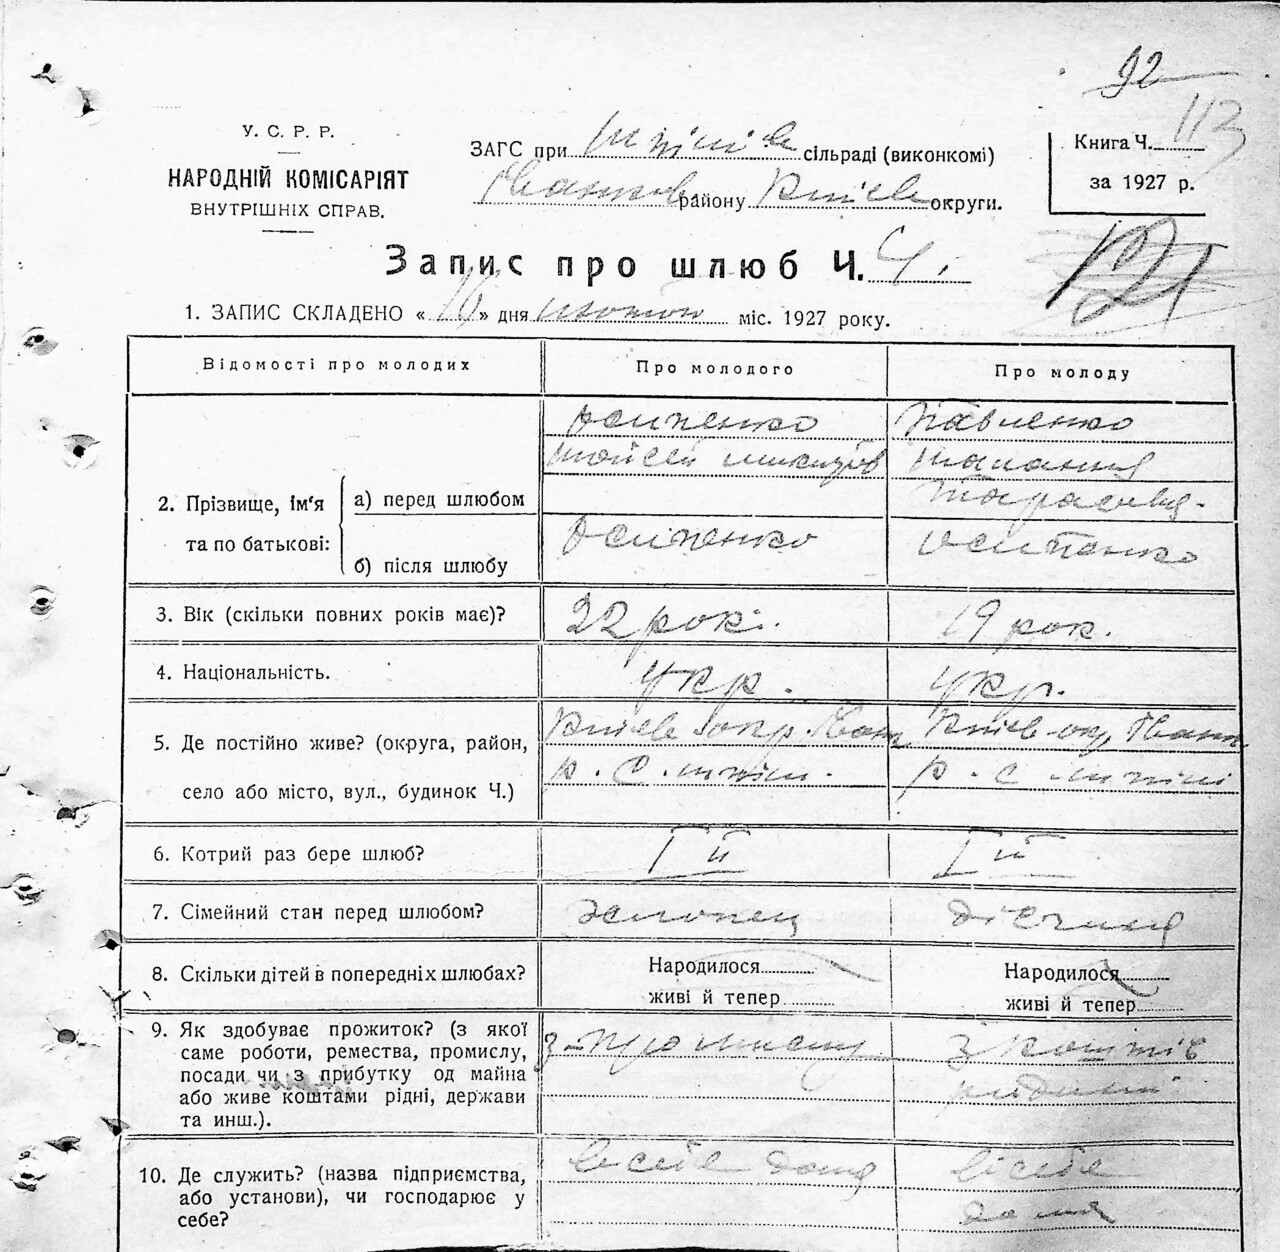 92
У. С. Р. Р.
НАРОДНІЙ КОМІСАРІЯТ
ВНУТРІШНІХ СПРАВ.
ЗАГС при сільраді (виконкомі)
району Київ округи.
Книга Ч. 113
за 1927 р.
121
Запис про шлюб Ч. 4.
1. ЗАПИС СКЛАДЕНО « 16 » дня лютого міс. 1927 року.
Відомості про молодих
Про молодого
Про молоду
2. Прізвище, ім'я та по батькові:
а) перед шлюбом
Осипенко
Мойсей
Павленко
Маланія
Тарасівна
б) після шлюбу
Осипенко
Осипенко
3. Вік (скільки повних років має)?
22 рокі.
19 рок.
4. Національність.
укр.
укр.
5. Де постійно живе? (округа, район,
село або місто, вул., будинок Ч.)
Київс окр. Іван
р. С.
Київ-ок, Іванк
р. с.
6. Котрий раз бере шлюб?
І й
І й
7. Сімейний стан перед шлюбом?
хлопец
дівчина
8. Скільки дітей в попередніх шлюбах?
Народилося
живі й тепер
Народилося
живі й тепер
9. Як здобуває прожиток? (з якої
саме роботи, ремества, промислу,
посади чи з прибутку од майна
або живе коштами рідні, держави
та инш.).
з-промислу
з коштів
родині
10. Де служить? (назва підприємства,
або установи), чи господарює у
себе?
в себе дома
в себе
дома